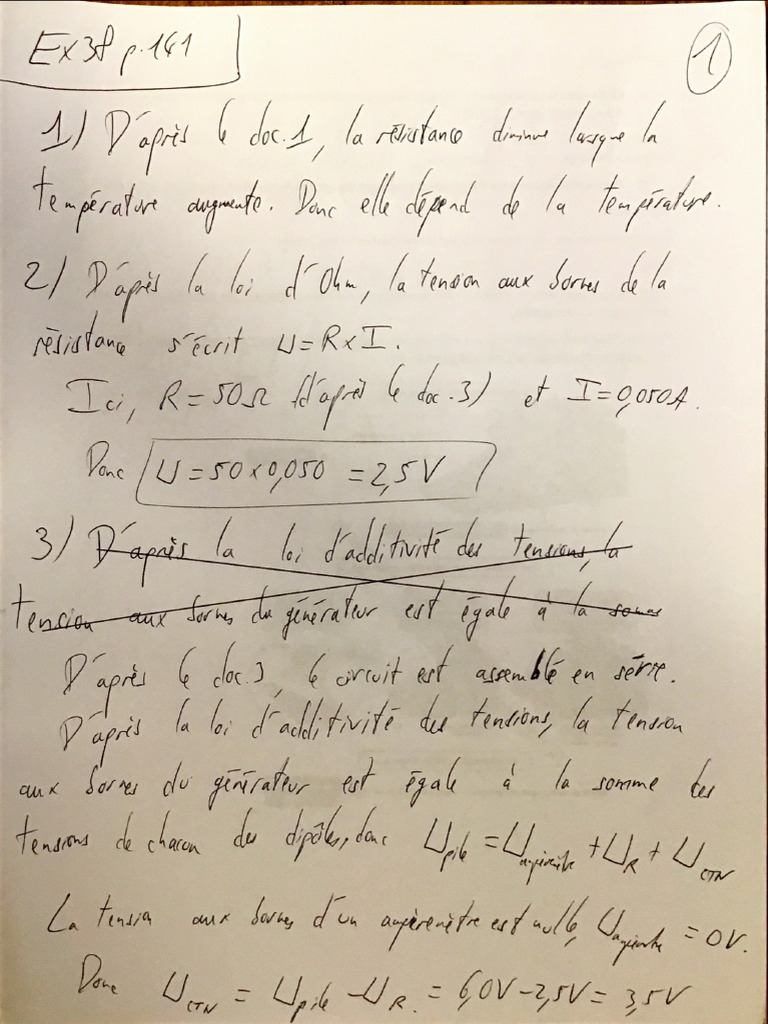 Ex 38 p.141
1
1) D'après le doc.1, la résistance diminue lorsque la
température augmente. Donc elle dépend de la température.
2) D'après la loi d'Ohm, la tension aux bornes de la
résistance s'écrit U=R×I.
Ici, R=50Ω (d'après le doc.3) et I=0,050A.
Donc U=50×0,050 =2,5V
3) D'après la loi d'additivité des tensions, la
tension aux bornes du générateur est égale à la somme
D'après le doc.3, le circuit est assemblé en série.
D'après la loi d'additivité des tensions, la tension
aux bornes du générateur est égale à la somme des
tensions de chacun des dipôles, donc Upile = Uampèremètre + UR + UCTN
La tension aux bornes d'un ampèremètre est nulle, Uampèremètre = 0V.
Donc UCTN = Upile - UR = 6,0V - 2,5V = 3,5V